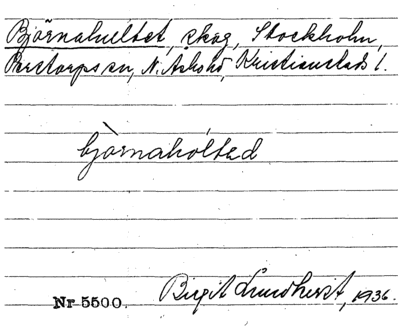 Björnahultet, skog, Stockholm,
Perstorps sn, N. Åsbo hd, Kristianstads l.
bjò̀rnahóltəd
Birgit Lundkvist, 1936.
Nr 5500.